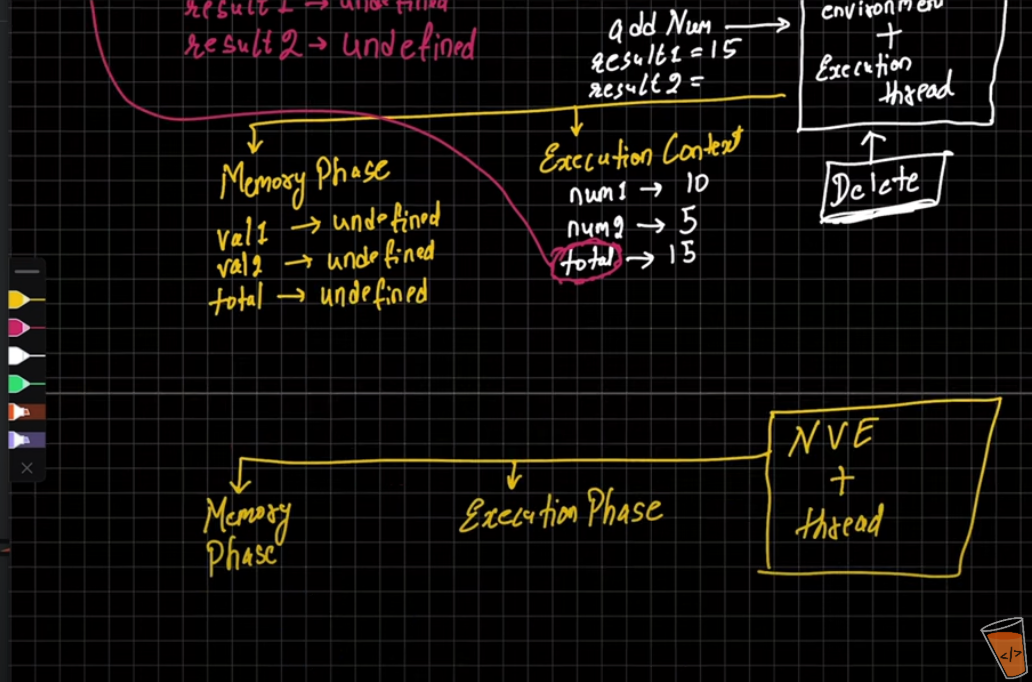 result 1 → undefined
result 2 → undefined
add Num →
result1 = 15
result 2 =
environment
+
Execution
thread
Delete
Memory Phase
val1 → undefined
val2 → undefined
total → undefined
Execution Context
num1 → 10
num2 → 5
total → 15
Memory
Phase
Execution Phase
NVE
+
thread
</>